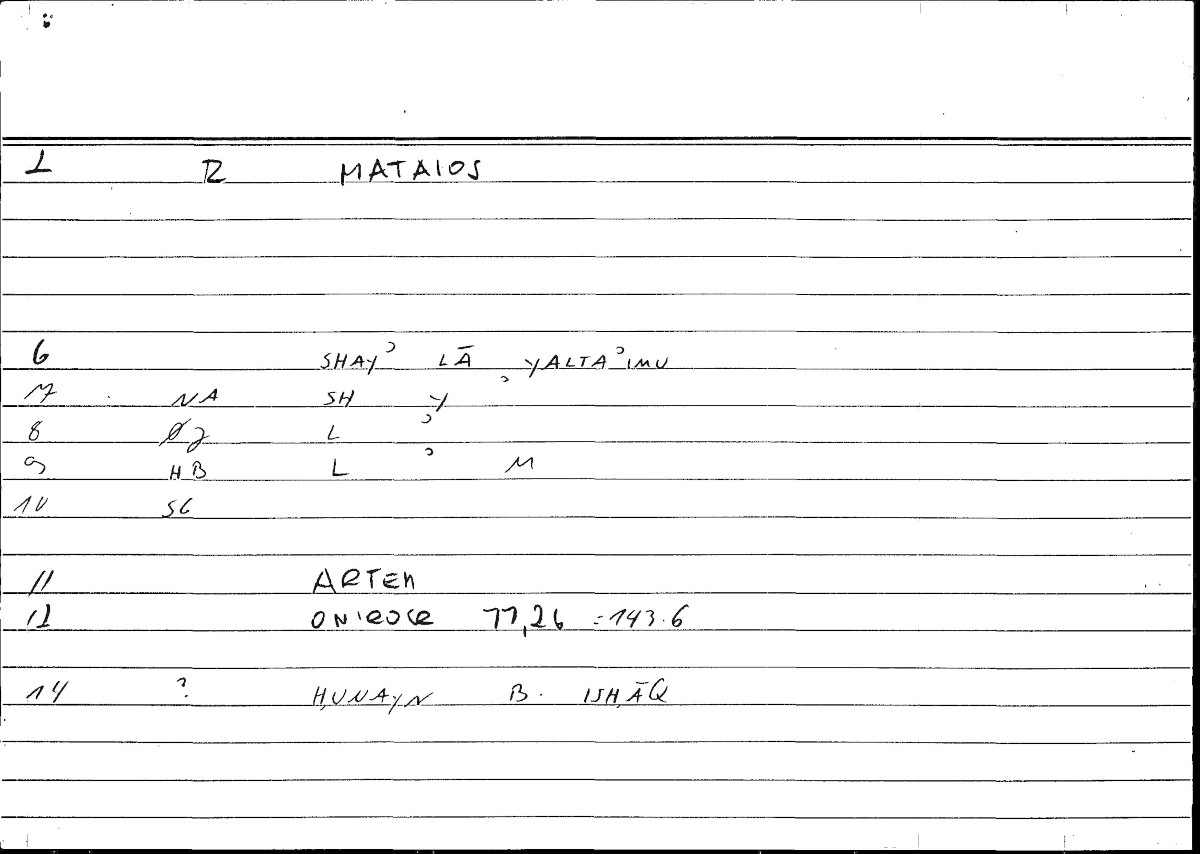 1 R MATAIOS
6 SHAYʾ LĀ YALTAʾIMU
7 NA SH Y ʾ
8 ØJ L ʾ
9 HB L ʾ M
10 SG
11 ARTEM
12 ONIROCR 77,26 = 143.6
14 ? ḤUNAYN B. ISḤĀQ